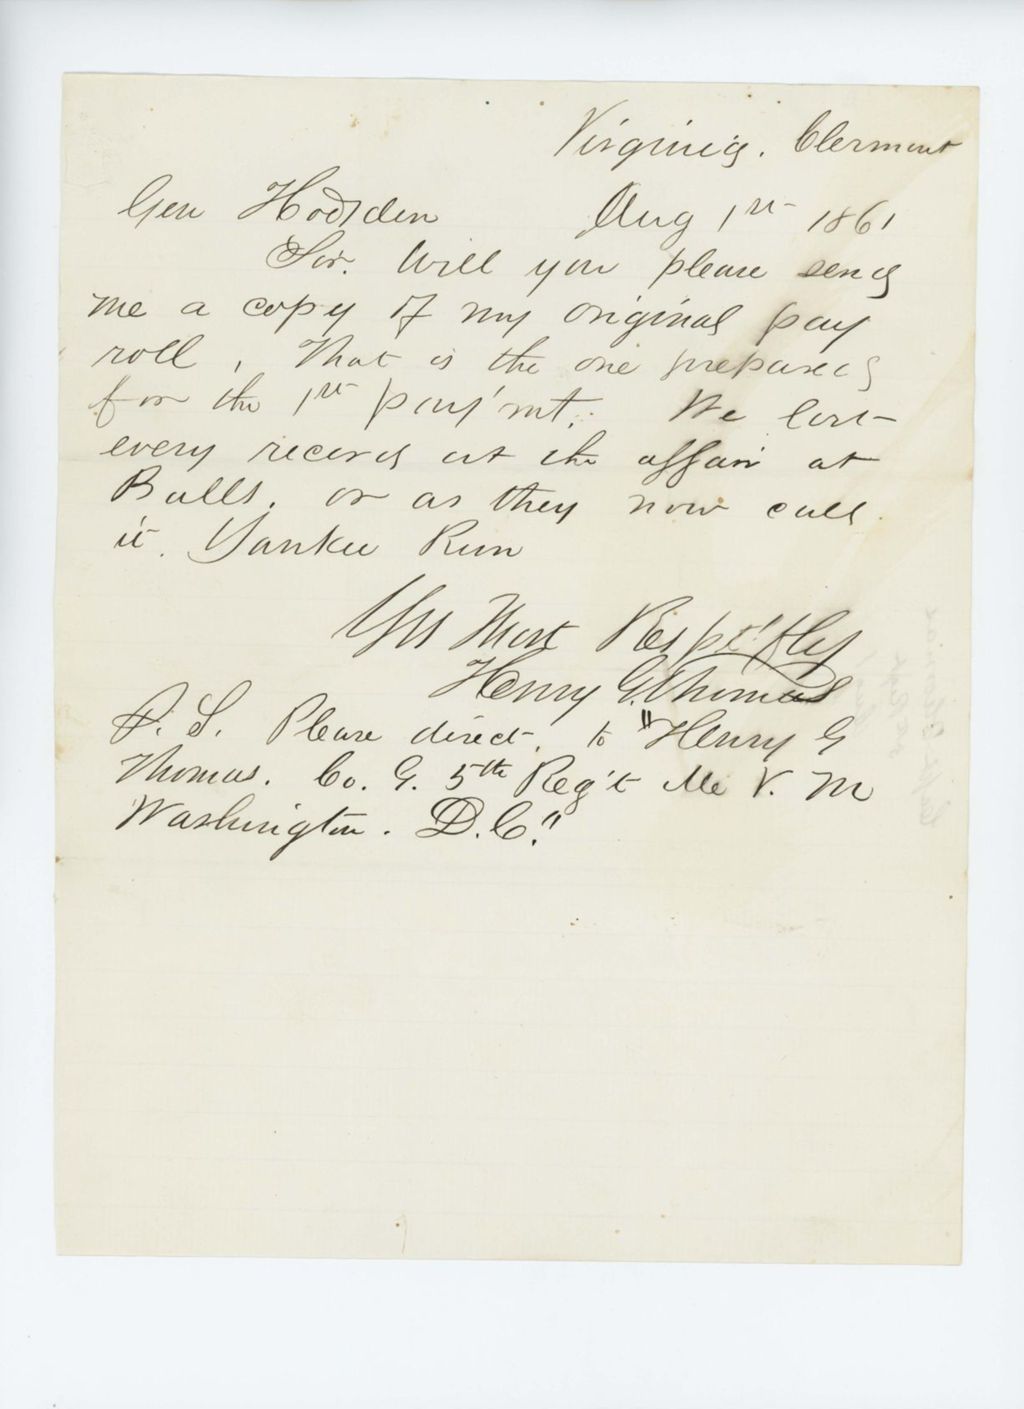 Virginia. Clermont
Gen Hodsden Aug 1st 1861
Sir. Will you please send
me a copy of my original pay
roll, That is the one prepared
for the 1st pay'mt. We lost
every record at the affair at
Bulls, or as they now call
it. Yankee Run
Yrs Most Resp't'fly
Henry G. Thomas
P. S. Please direct, to "Henry G
Thomas. Co. G. 5th Reg't Me V. M
Washington. D.C."